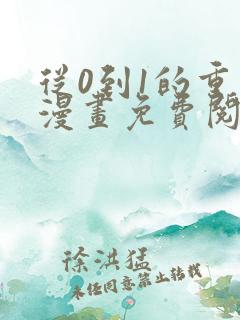 從0到1的重
漫畫免費閱
徐洪猛
未經同意禁止轉載